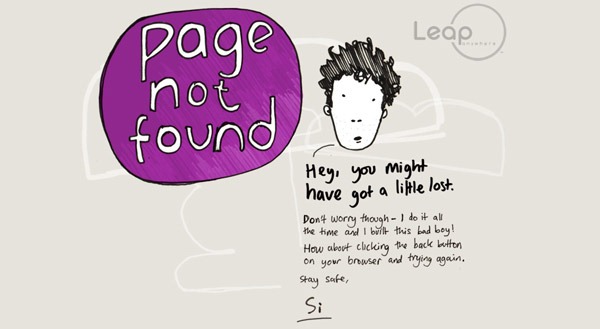 page
not
found
Leap
anywhere
Hey, you might
have got a little lost.
Don't worry though - I do it all
the time and I built this bad boy!
How about clicking the back button
on your browser and trying again.
Stay safe,
Si